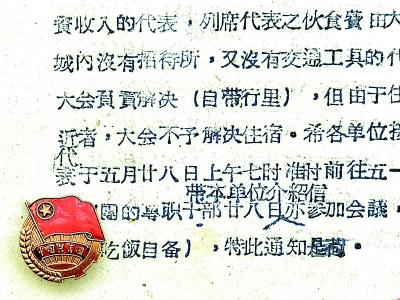 資收入的代表，列席代表之伙食費由大
城內沒有招待所，又沒有交通工具的代
大会負責解决（自带行里），但由于住
近者，大会不予解决住宿。希各单位接
代
表于五月廿八日上午七时準时前往五一
带本单位介紹信
園的專职干部廿八日亦参加会議，
吃飯自备），特此通知是荷。